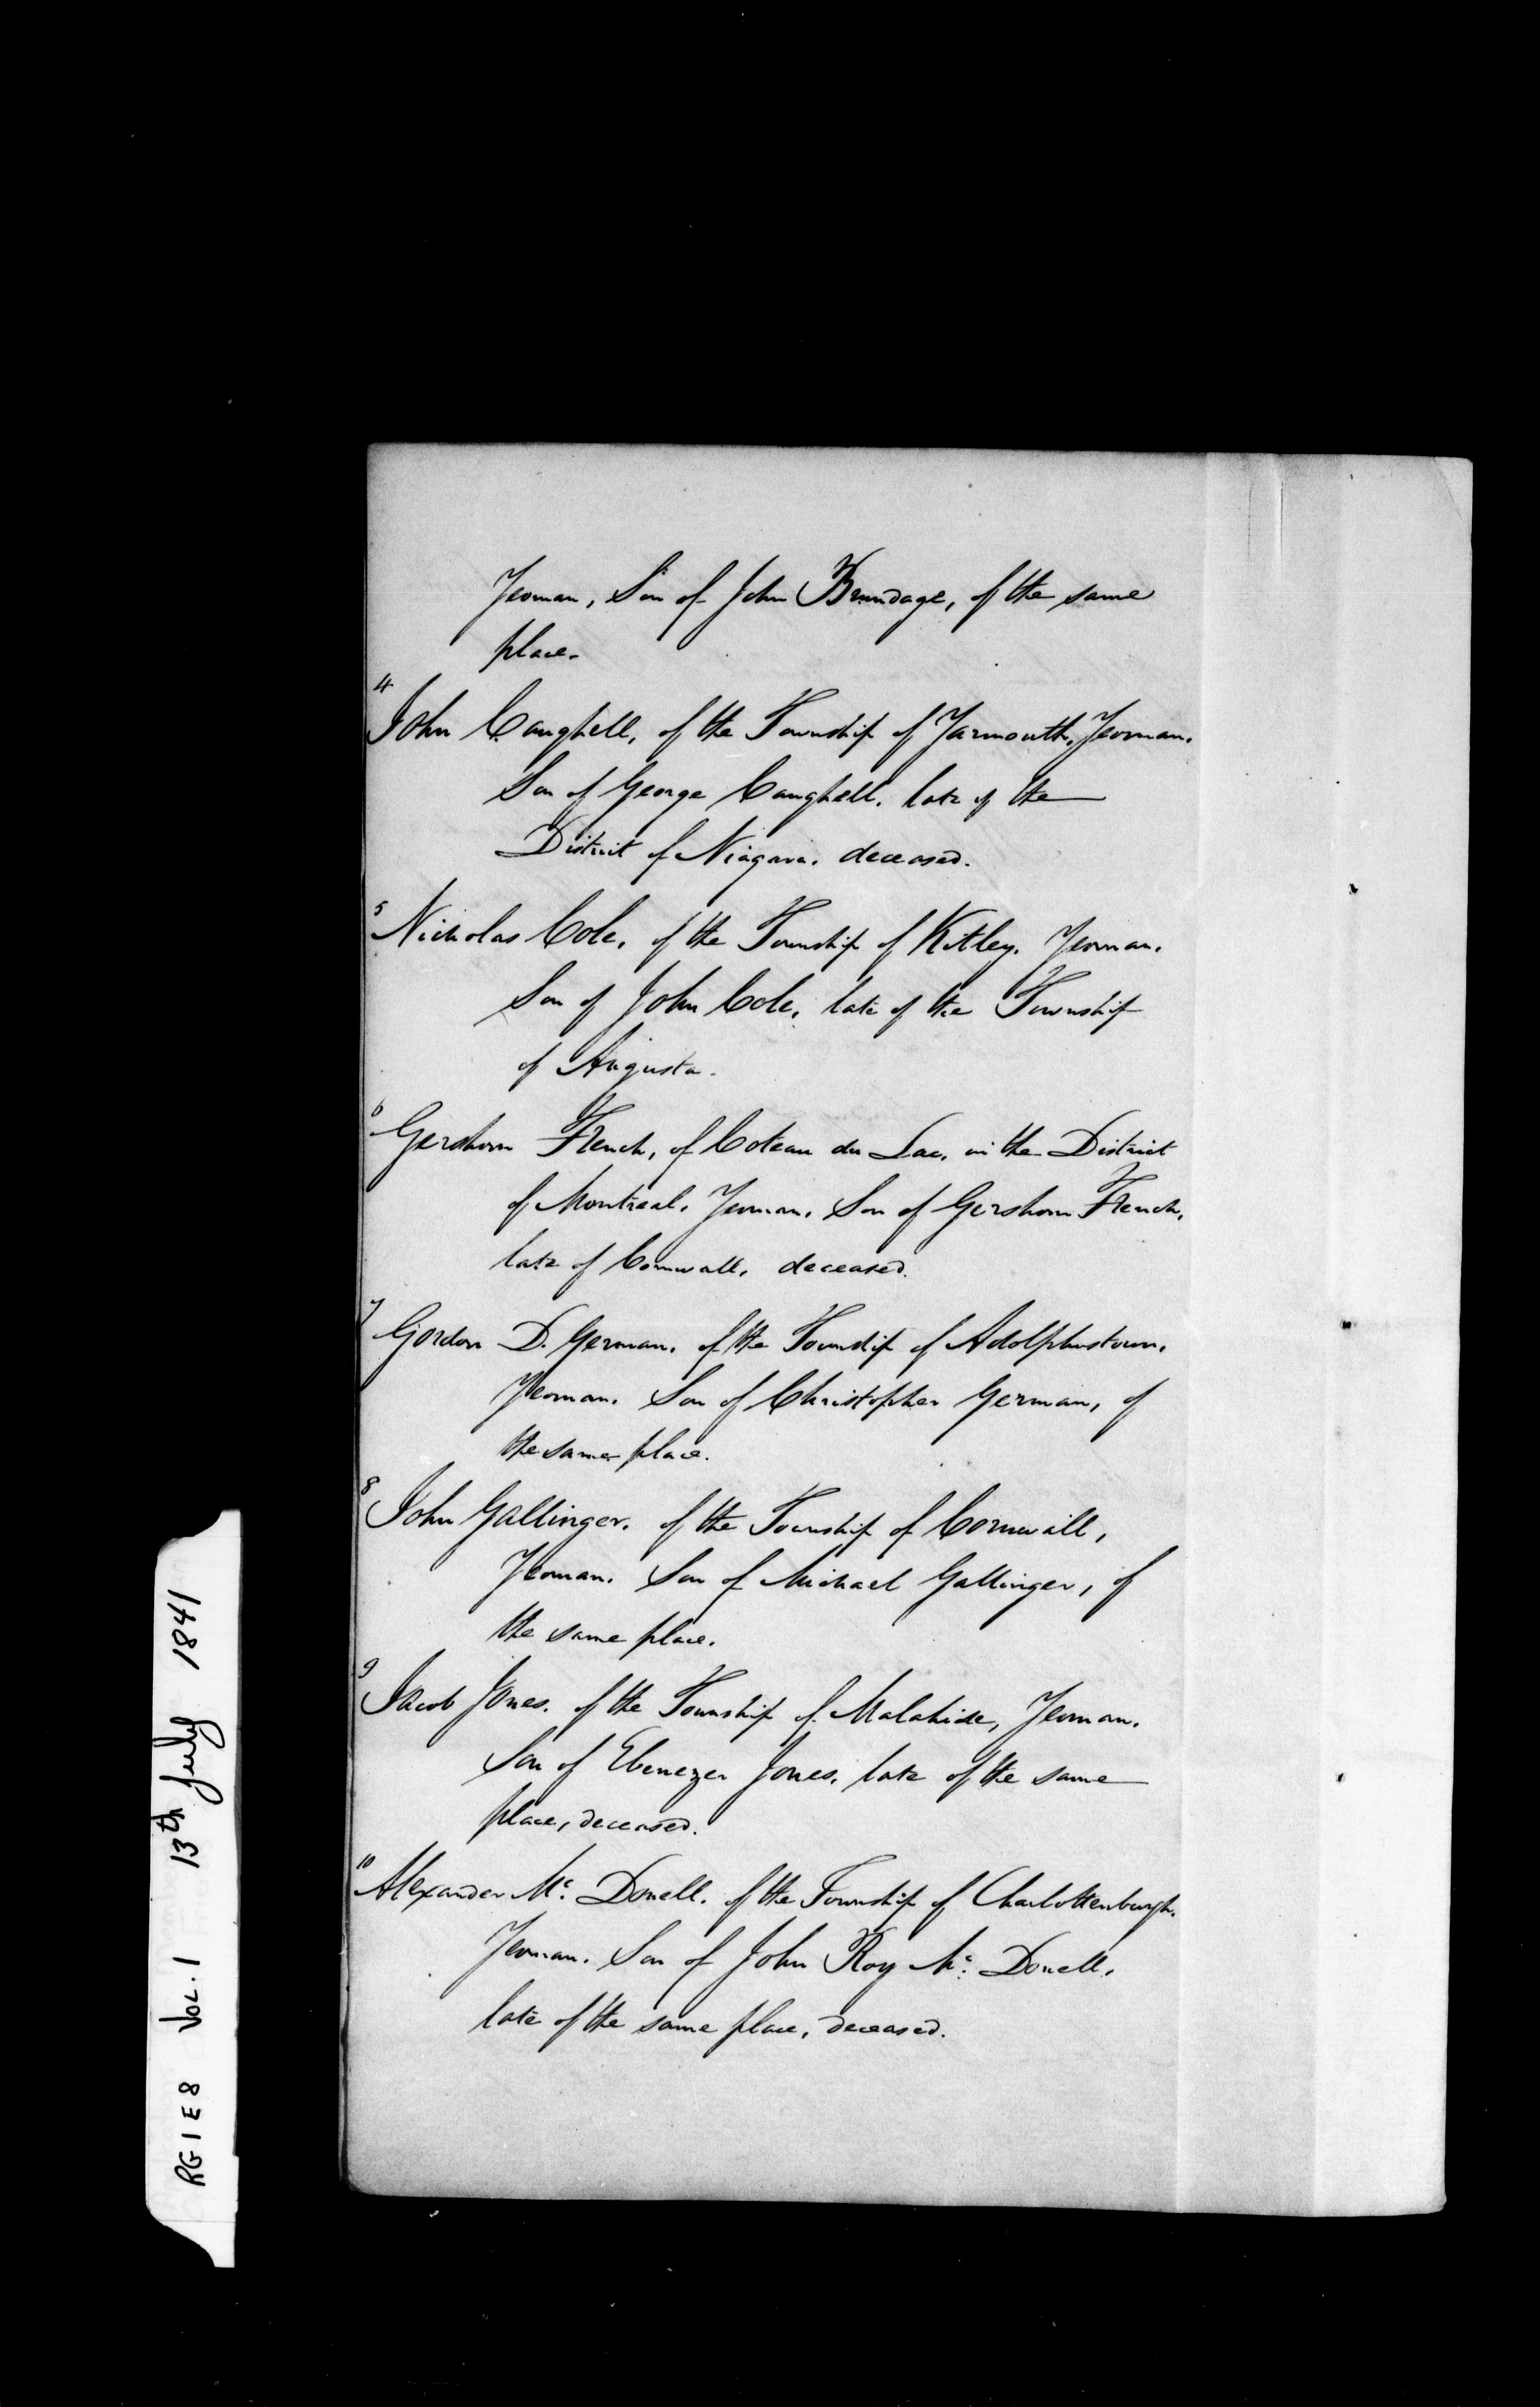 Yeoman, Son of John Brundage, of the same
place.
4
John Caughell, of the Township of Yarmouth, Yeoman.
Son of George Caughell. late of the
District of Niagara. deceased.
5
Nicholas Cole, of the Township of Kitley. Yeoman.
Son of John Cole, late of the Township
of Augusta.
6
Gershom French, of Coteau du Lac, in the District
of Montreal. Yeoman. Son of Gershom French,
late of Cornwall, deceased.
7
Gordon D. German. of the Township of Adolphustown.
Yeoman. Son of Christopher German, of
the same place.
8
John Gallinger. of the Township of Cornwall,
Yeoman. Son of Michael Gallinger, of
the same place.
9
Jacob Jones. of the Township of Malahide, Yeoman.
Son of Ebenezer Jones, late of the same
place, deceased.
10
Alexander Mc. Donell. of the Township of Charlottenburgh.
Yeoman. Son of John Roy Mc. Donell,
late of the same place, deceased.
RG 1 E 8 VOL. 1 13th July 1841